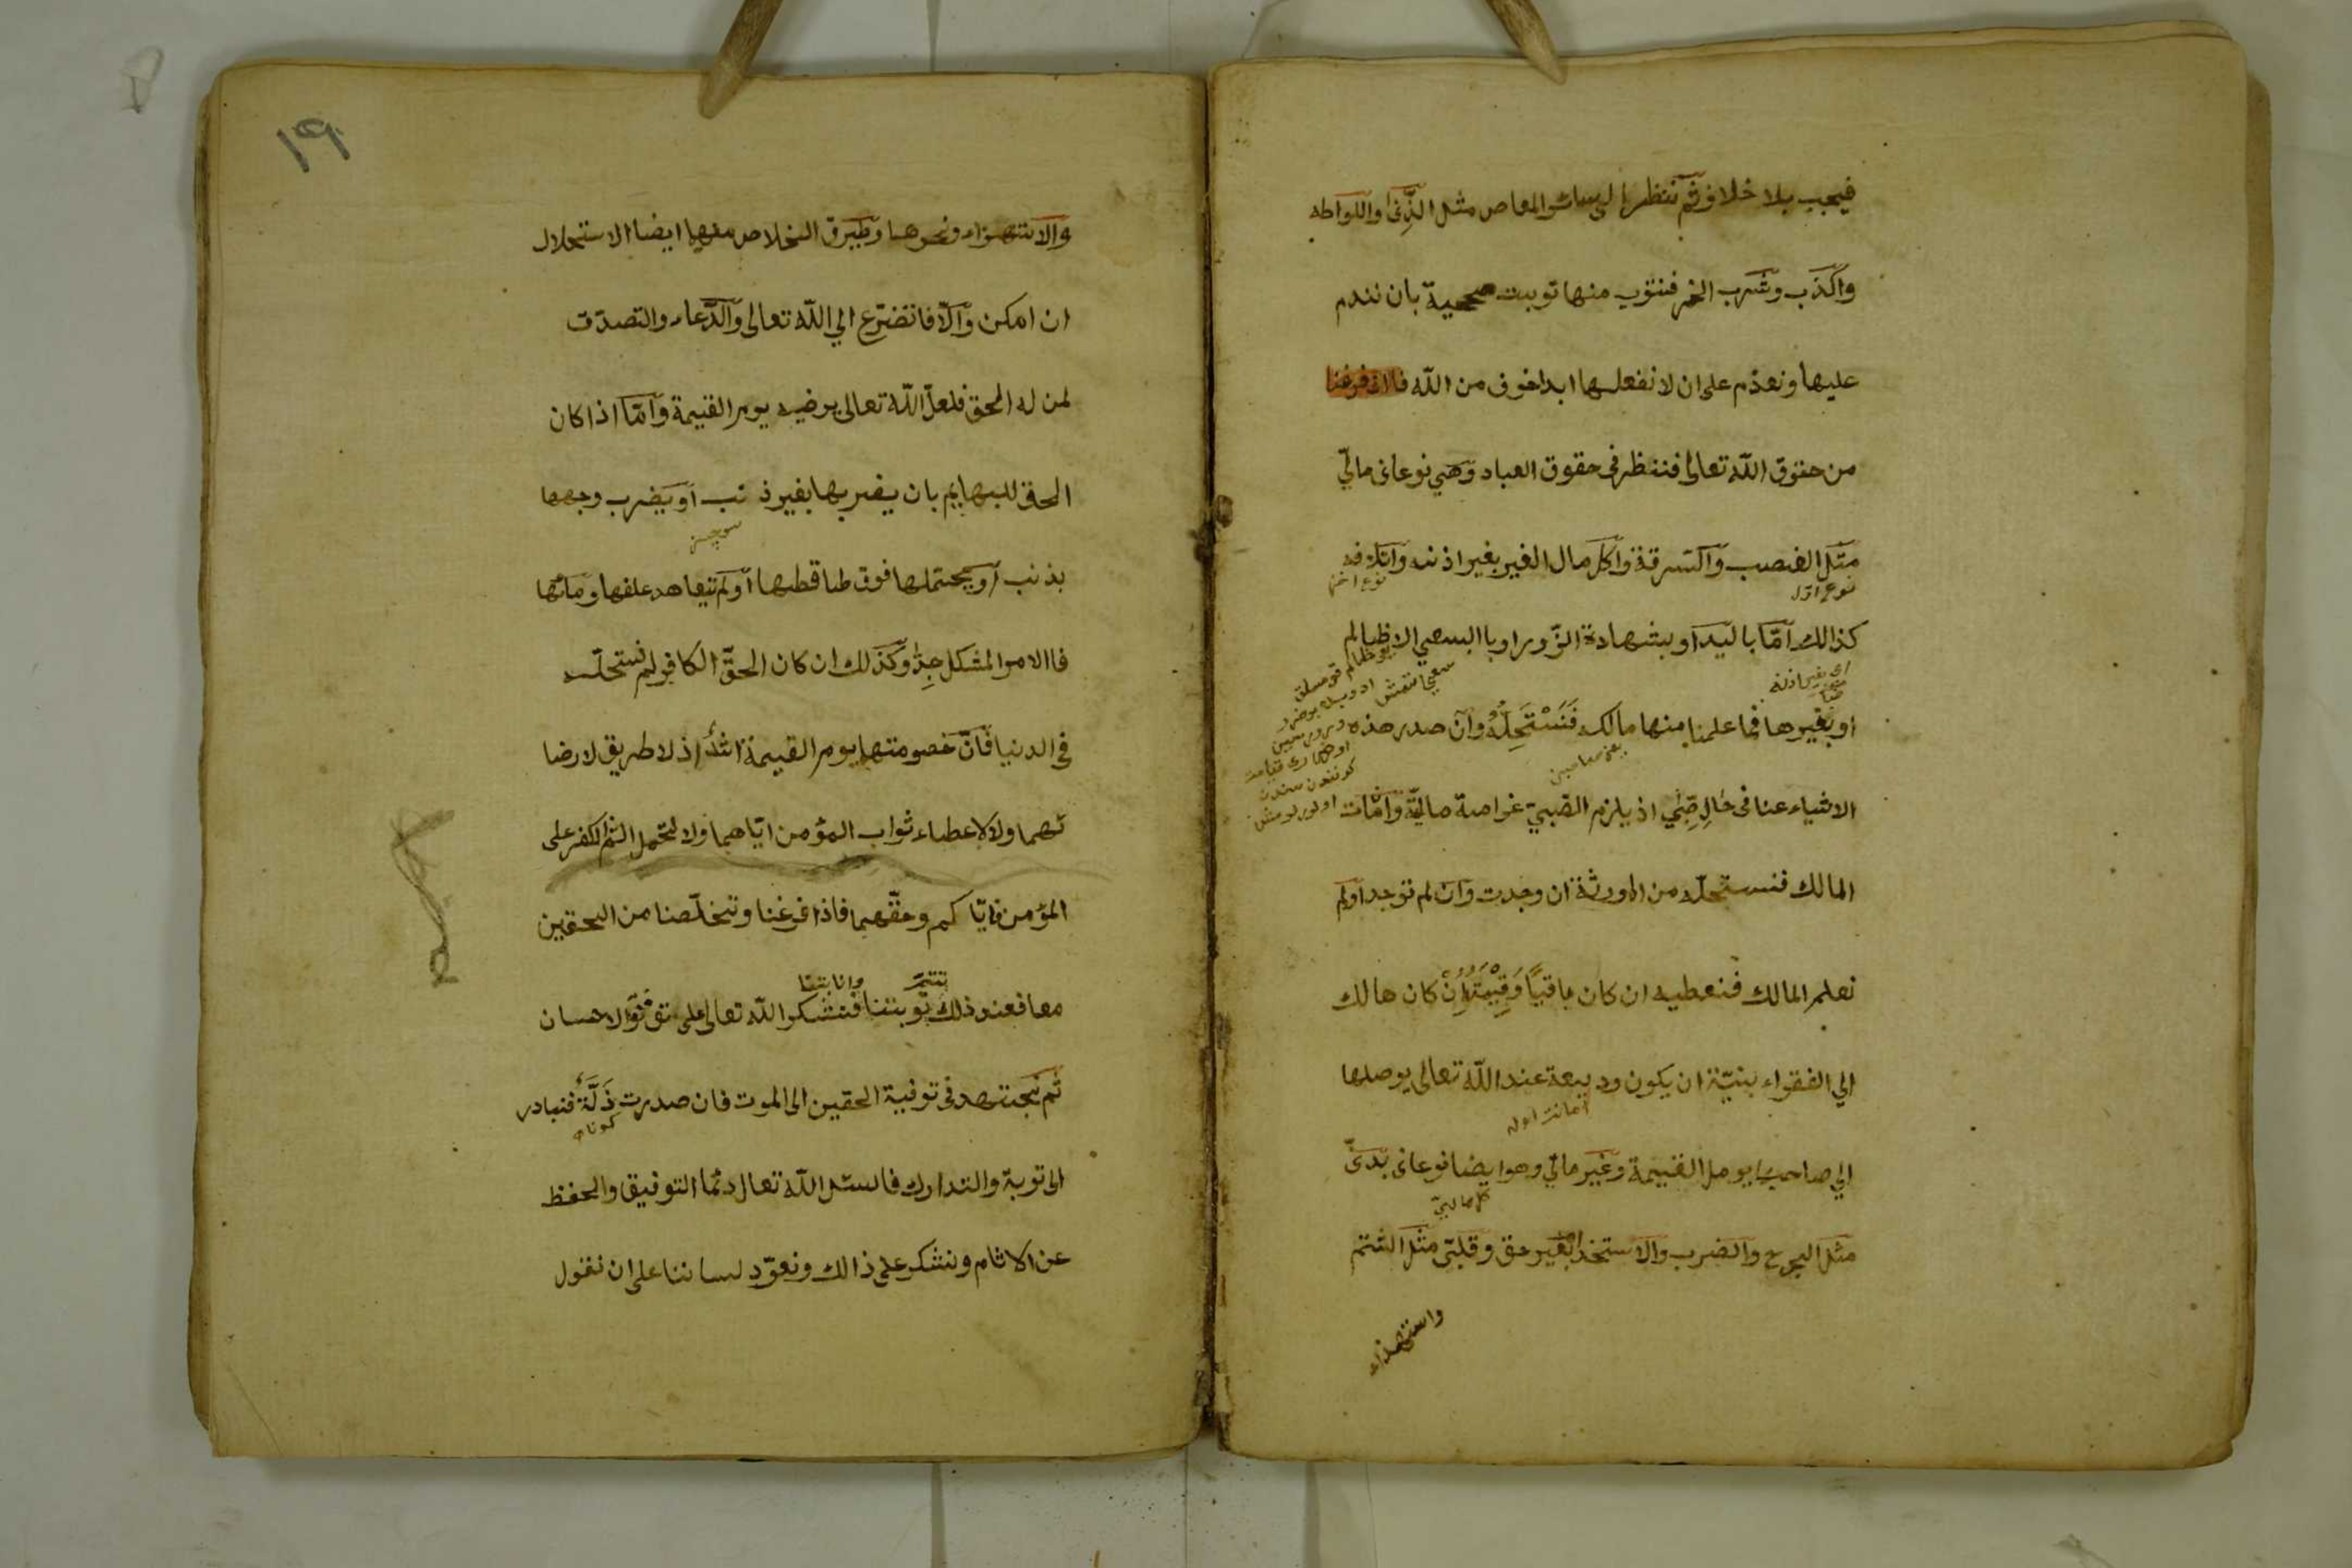 فيجب بلا خلاف ثم ننظر الى سائر المعاص مثل الزنى واللواطه
والكذب وشرب الخمر فنتوب منها توبت صحيحة بان نندم
عليها ونعذم على ان لا نفعلها ابدا خوف من الله فااذ فرغنا
من حقوق الله تعالى فننظر فى حقوق العباد وهي نوعان مالي
مثل الغصب والسرقة واكل مال الغير بغير اذنه واتلافه
نوع اول
نوع اخر
كذالك امّا باليد او بشهادة الزّور او باالسعي الا ظالم
اى بغير اذنه
او بغيرها فما علمنا منها مالكه فَنَسْتَحِلُّهُ وان صدر هذه
الاشياء عنا فى حالِ صِبًى اذ يلزم الصّبيّ غرامة ماليّة وان مات
المالك فنستحلّه من الورثة ان وجدت وان لم توجد اولم
نعلم المالك فنعطيه ان كان باقيًا وَقِيْمَتَهُ اِنْ كان هالك
الي الفقراء بنيّة ان يكون وديعة عند الله تعالى يوصلها
امانت اوله
الي صاحبها يوم القيمة وغير مالي وهو ايضا نوعان بدنىّ
مثل الجرح والضرب والاستخدام بغير حق وقلبّى مثل الشتم
واستهذاء
١٩
والاستهزاء ونحوها وطيرق الخلاص منها ايضا الاستحلال
ان امكن والّا فاتضرّع الي الله تعالى والدّعاء والتصدّق
لمن له الحق فلعلّ الله تعالى يرضيه يوم القيمة وامّا اذا كان
الحق للبهايم بان يضربها بغير ذنب او يضرب وجهها
سوچسز
بذنب او يحتملها فوق طاقطها اولم تيعاهد علفها ومائها
فاالامر المشكل جدّا وكذلك ان كان الحقّ الكافر لم نستحلّه
فى الدنيا فانّ خصومتها يوم القيمة اشدّ اذ لا طريق لارضا
ئهما ولا لاعطاء ثواب المؤمن ايّاهما ولا لتحمل اثم الكفر على
المؤمن فايّاكم وحقّهما فاذا فرغنا وتخلّصنا من الحقين
معا فعند ذلك توبتنا فنشكر الله تعالى على توفق الاحسان
تتمّ
وانابتنا
ثم نجتهد فى توفية الحقين الى الموت فان صدرت ذَلَّةٌ فنبادر
كوناه
الى توبة والتدارك فالسئل الله تعال دئما التوفيق والحفظ
عن الاثام ونشكر على ذالك ونعوّد لساننا على ان نقول